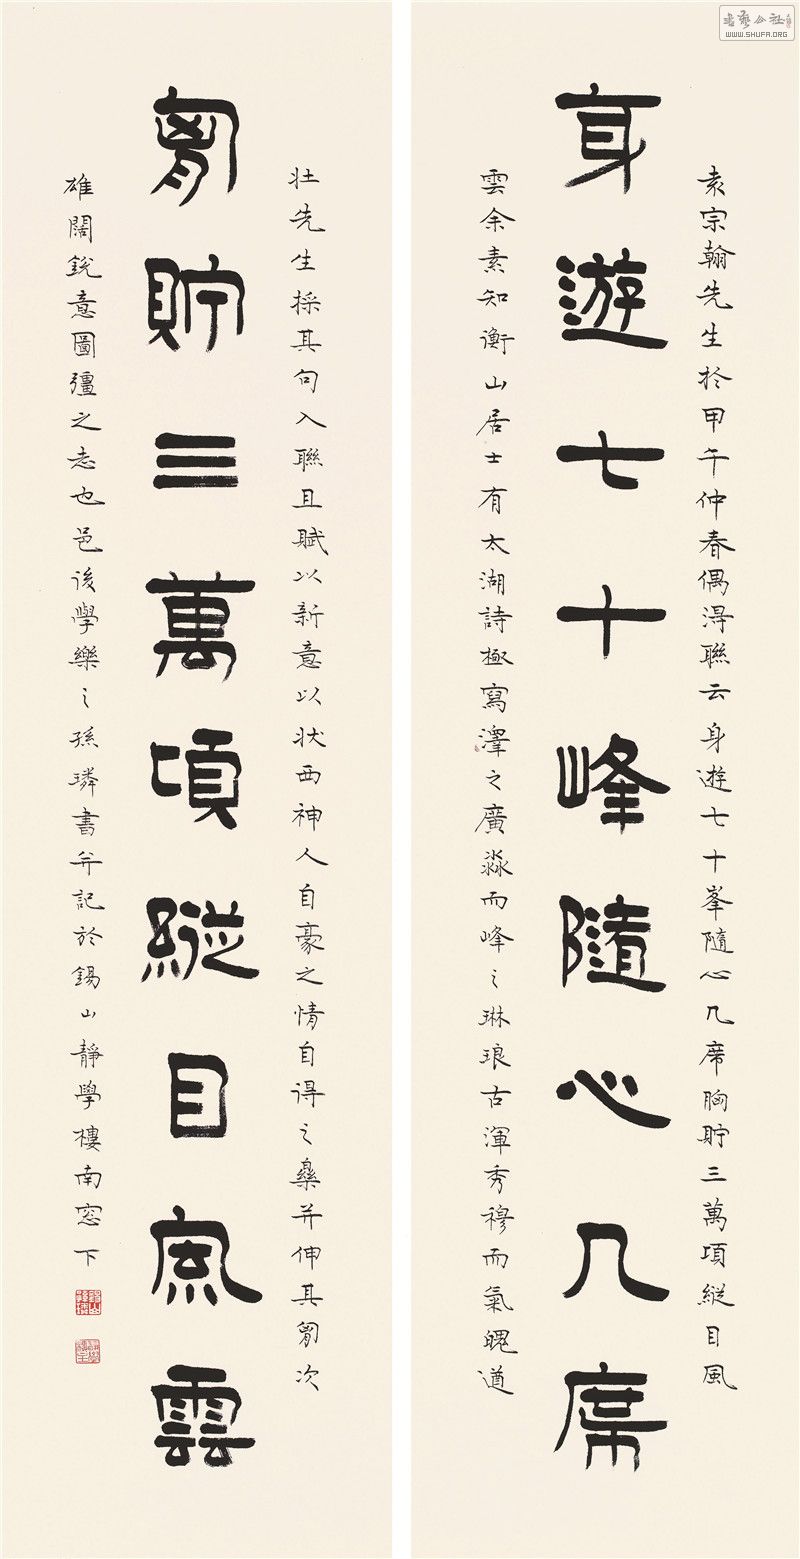 身遊七十峰隨心几席
袁宗翰先生於甲午仲春偶得聯云身遊七十峯隨心几席胸貯三萬項縱目風
雲余素知衡山居士有太湖詩極寫澤之廣淼而峰之琳琅古渾秀穆而氣魄遒
胷貯三萬項縱目風雲
壮先生採其句入聯且賦以新意以状西神人自豪之情自得之樂并伸其胷次
雄闊銳意圖彊之志也邑後學樂之孫璘書并記於錫山靜學樓南窓下
書藝公社
WWW.SHUFA.ORG